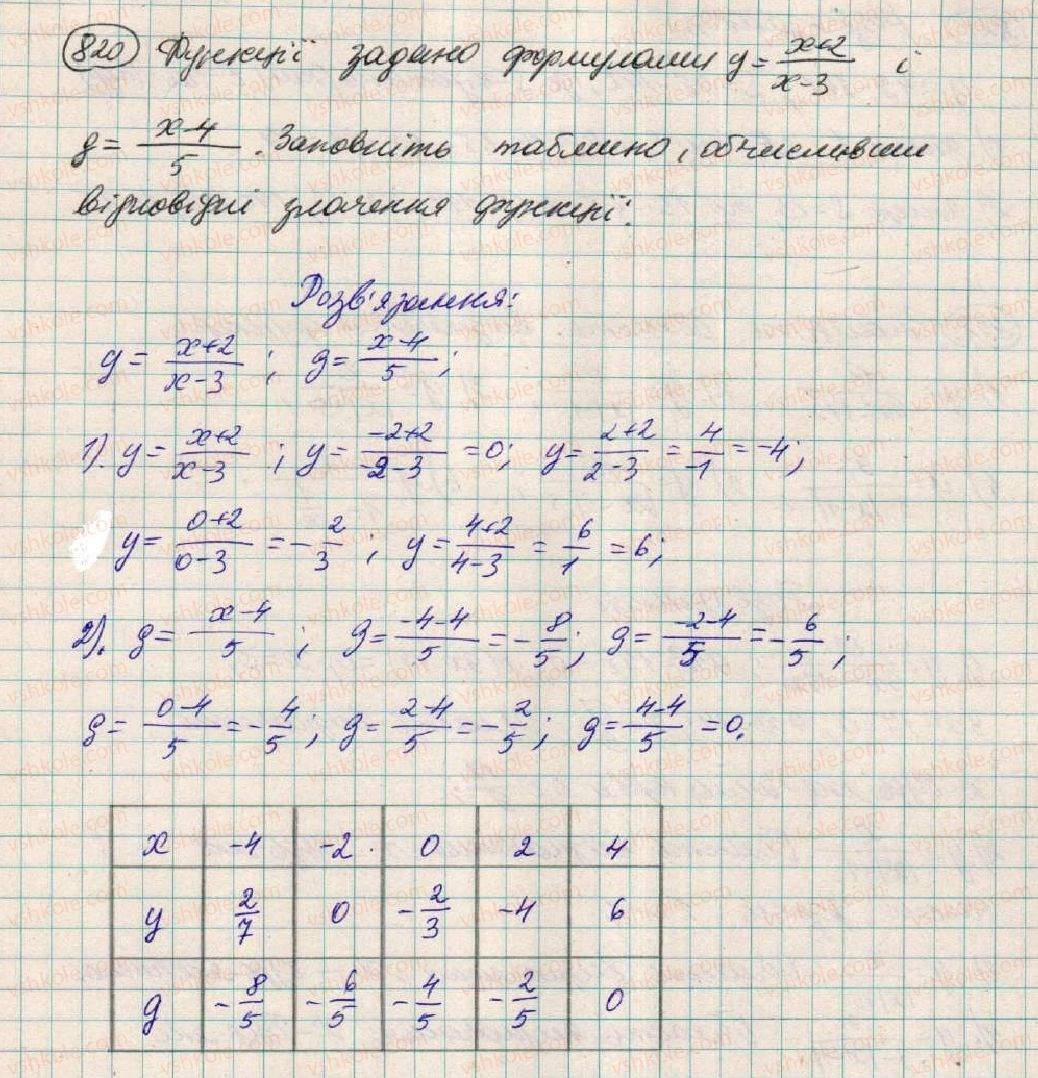 820 Функції задано формулами y = x+2/x-3 і
g = x-4/5. Заповніть таблицю, обчисливши
відповідні значення функції:
Розв'язання:
y = x+2/x-3; g = x-4/5;
1). y = x+2/x-3; y = -2+2/-2-3 = 0; y = 2+2/2-3 = 4/-1 = -4;
y = 0+2/0-3 = -2/3; y = 4+2/4-3 = 6/1 = 6;
2). g = x-4/5; g = -4-4/5 = -8/5; g = -2-4/5 = -6/5;
g = 0-4/5 = -4/5; g = 2-4/5 = -2/5; g = 4-4/5 = 0.
x -4 -2 0 2 4
y 2/7 0 -2/3 -4 6
g -8/5 -6/5 -4/5 -2/5 0